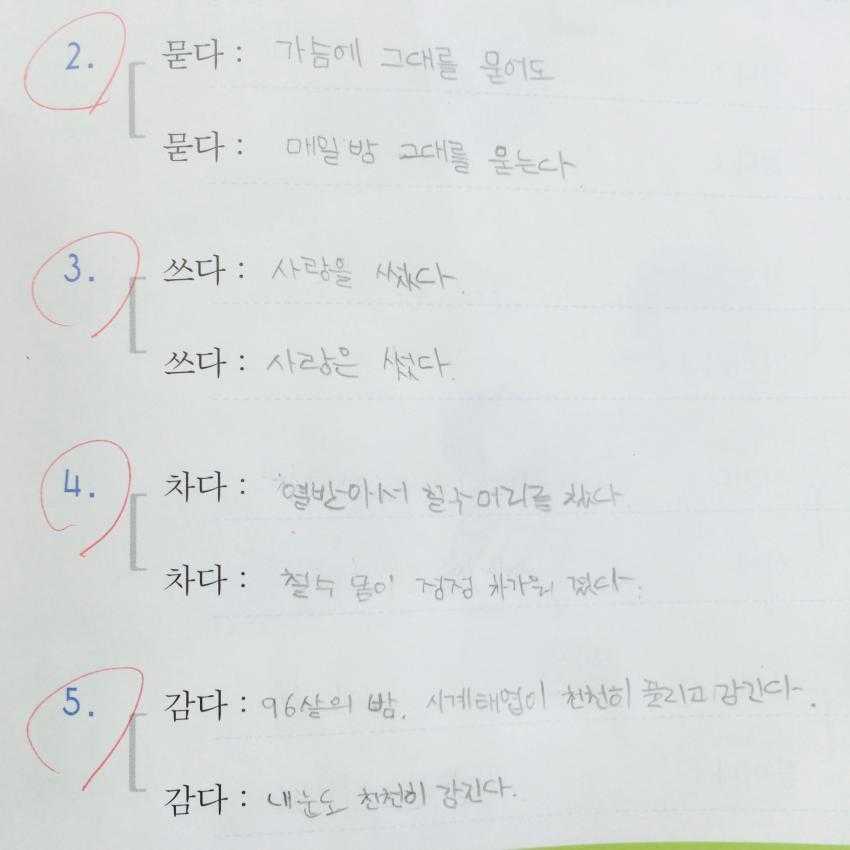 2. 묻다 : 가슴에 그대를 묻어도
묻다 : 매일밤 그대를 묻는다
3. 쓰다 : 사랑을 썼다.
쓰다 : 사랑은 썼다.
4. 차다 : 열받아서 철수머리를 찼다
차다 : 철수 몸이 점점 차가워 졌다.
5. 감다 : 96살의 밤. 시계태엽이 천천히 풀리고 감긴다.
감다 : 내눈도 천천히 감긴다.